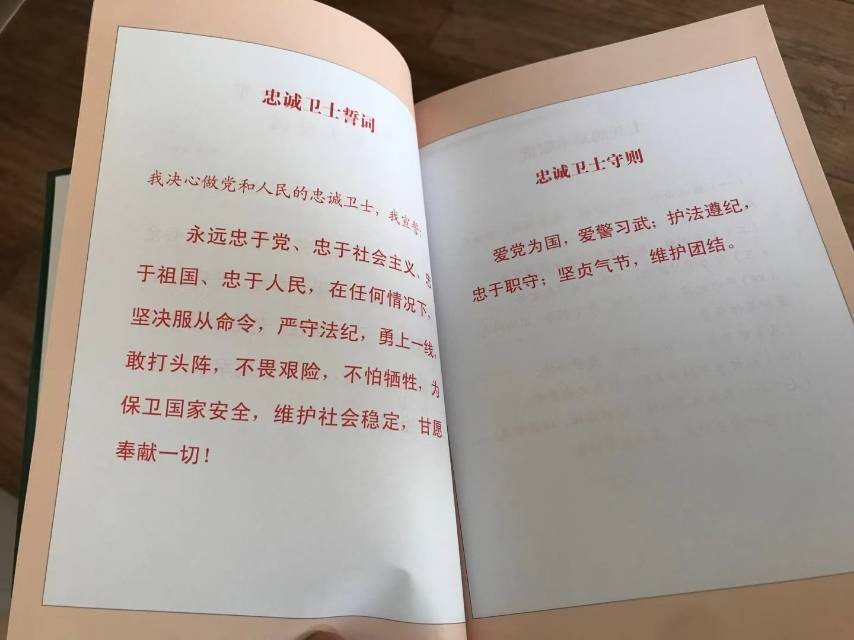 忠诚卫士誓词
我决心做党和人民的忠诚卫士，我宣誓：
永远忠于党、忠于社会主义、忠
于祖国、忠于人民，在任何情况下，
坚决服从命令，严守法纪，勇上一线，
敢打头阵，不畏艰险，不怕牺牲，为
保卫国家安全，维护社会稳定，甘愿
奉献一切！
忠诚卫士守则
爱党为国，爱警习武；护法遵纪，
忠于职守；坚贞气节，维护团结。